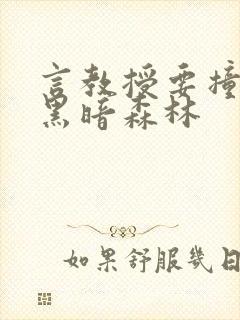 言教授要撞
黑暗森林
如果舒服几日